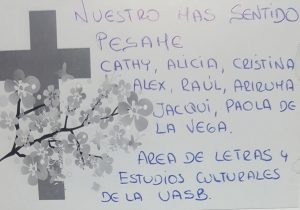 NUESTRO MAS SENTIDO
PESAME
CATHY, ALICIA, CRISTINA
ALEX, RAÚL, ARIRUMA
JACQUI, PAOLA DE
LA VEGA.
AREA DE LETRAS Y
ESTUDIOS CULTURALES
DE LA UASB.